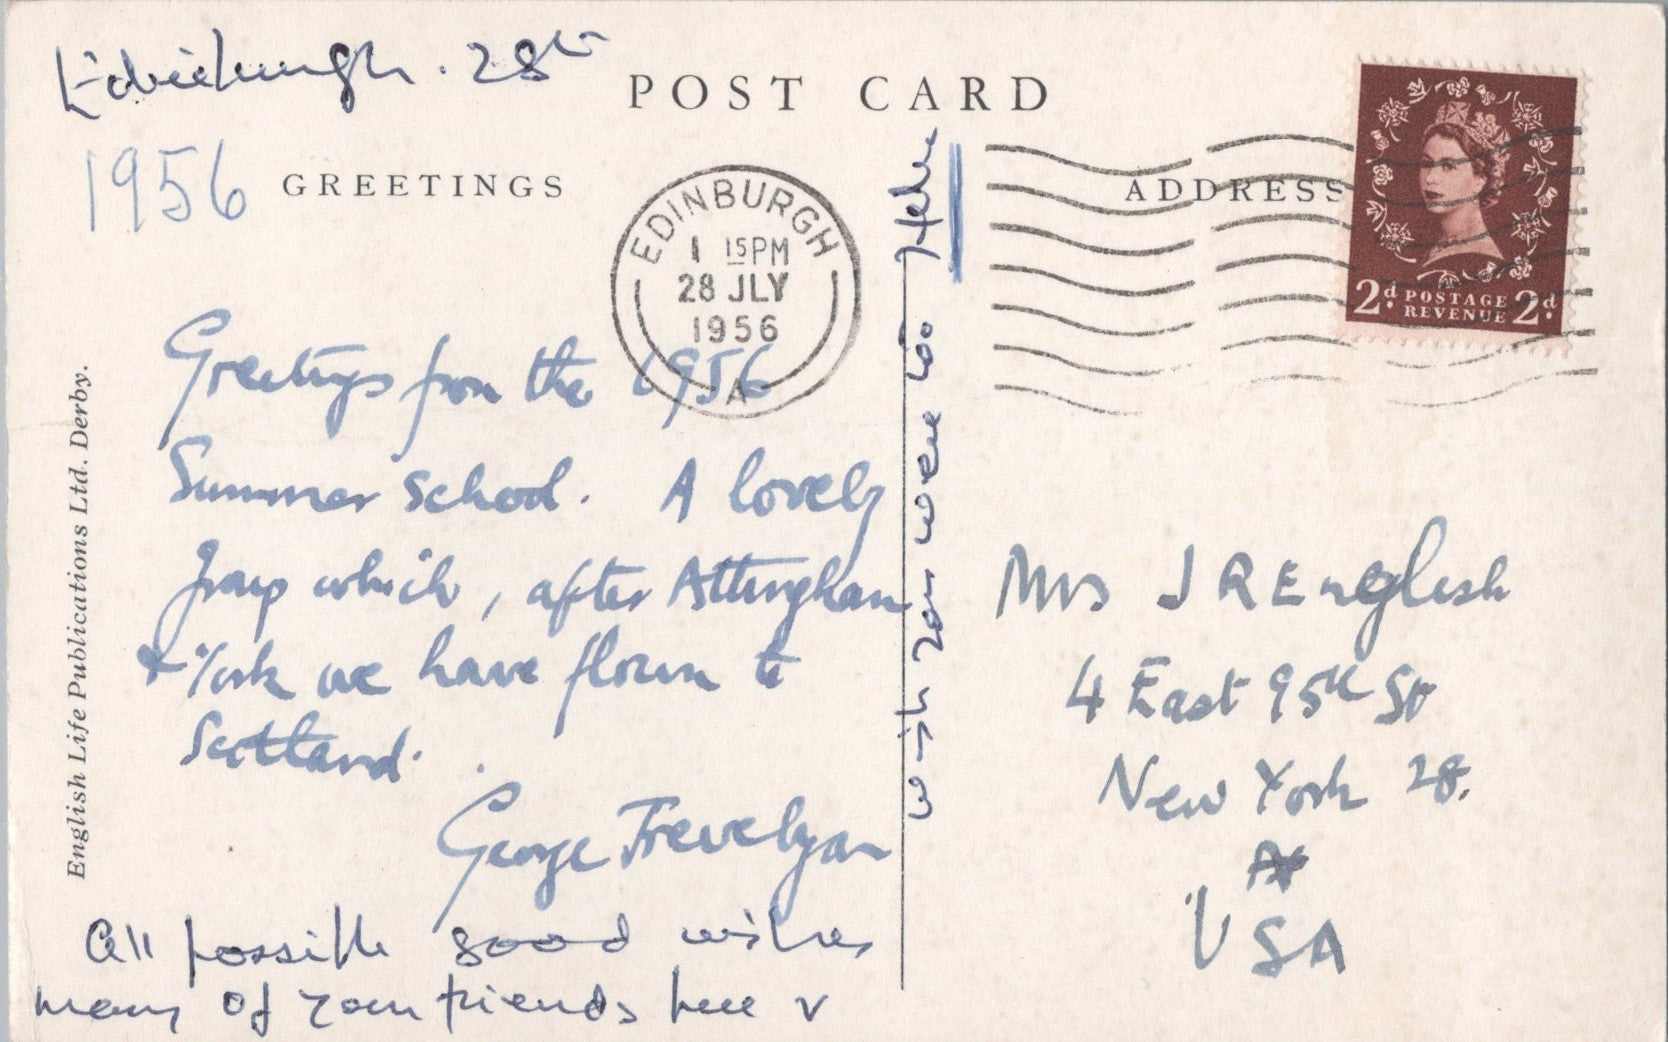 Edinburgh. 28th
POST CARD
1956
GREETINGS
ADDRESS
EDINBURGH
1 15PM
28 JLY
1956
A
2d. POSTAGE REVENUE 2d.
Greetings from the 1956
Summer School. A lovely
group which, after Attingham
& York we have flown to
Scotland.
George Trevelyan
All possible good wishes
many of your friends here &
wish you were too
Mrs J R English
4 East 95th St
New York 28.
USA
English Life Publications Ltd. Derby.